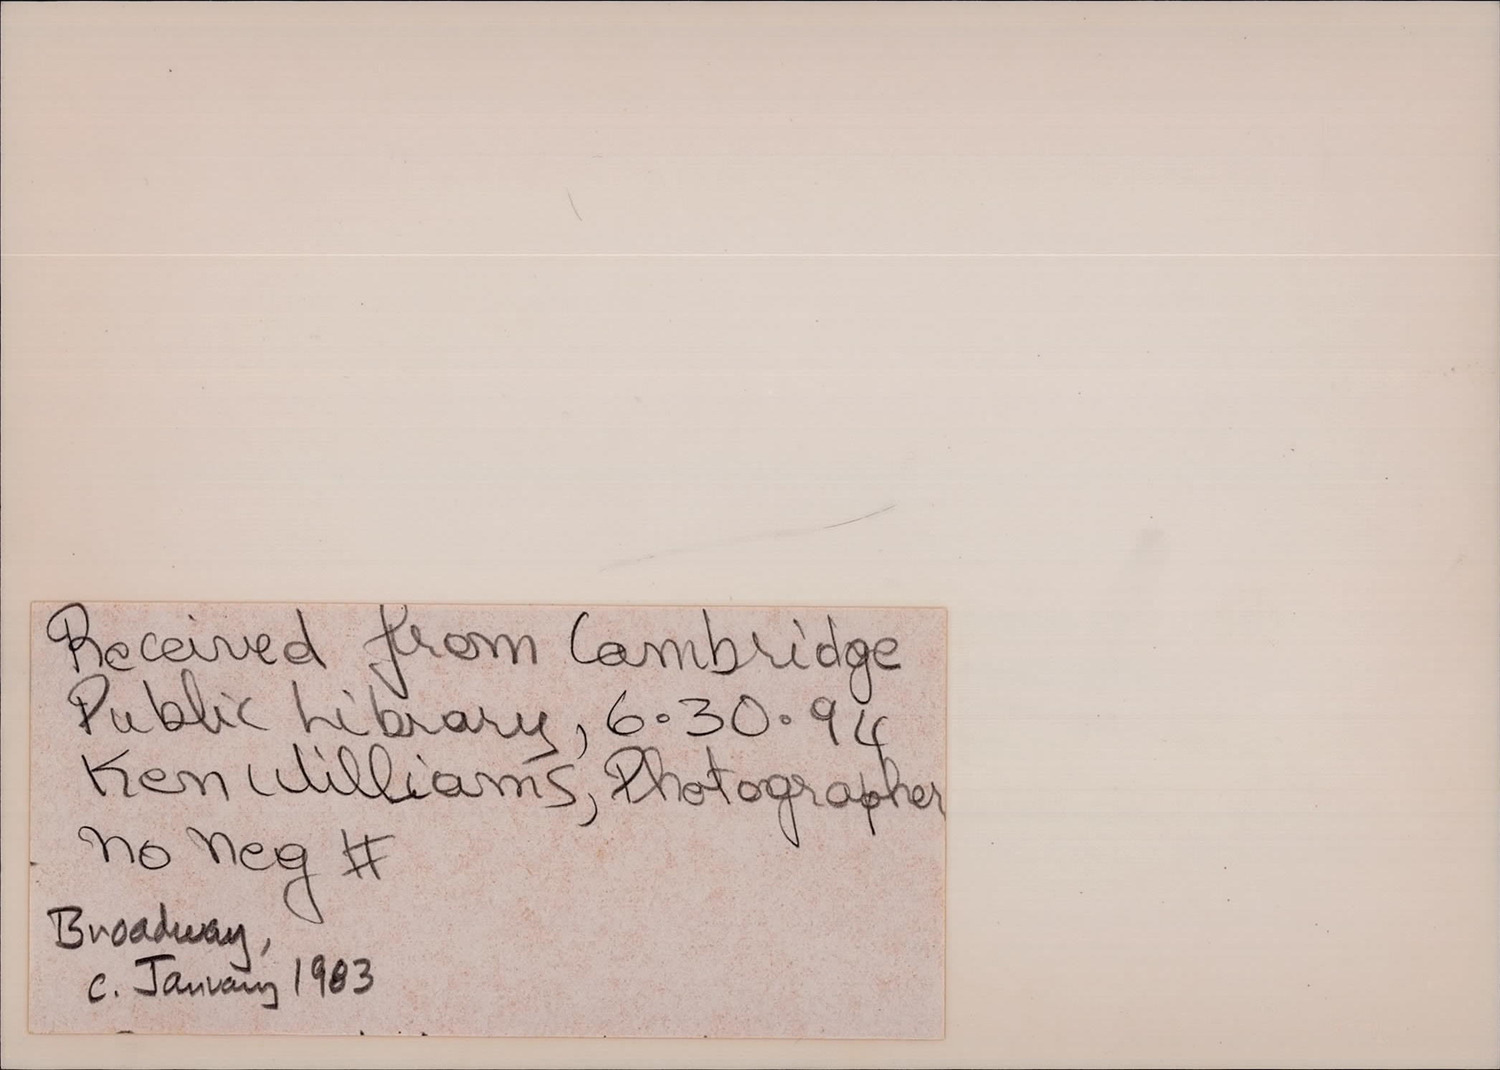 Received from Cambridge
Public Library, 6.30.94
Ken Williams, Photographer
No Neg #
Broadway,
c. January 1983